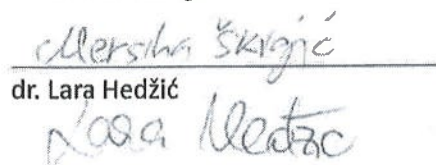 Mersiha Škrgić
dr. Lara Hedžić
Lara Hedžić